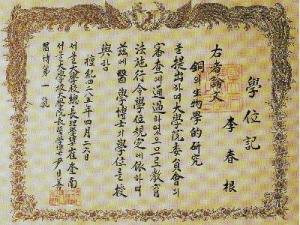 學位記
李春根
右者論文
銅의生物學的研究
를提出하여大學院委員會의
審査에通過하였으므로敎育
法施行令學位規定에依하여
玆에醫學博士의學位를授
與함
檀紀四二八五年四月二六日
서울大學校總長 崔奎南
서울大學校大學院長 尹日善
醫博第一號